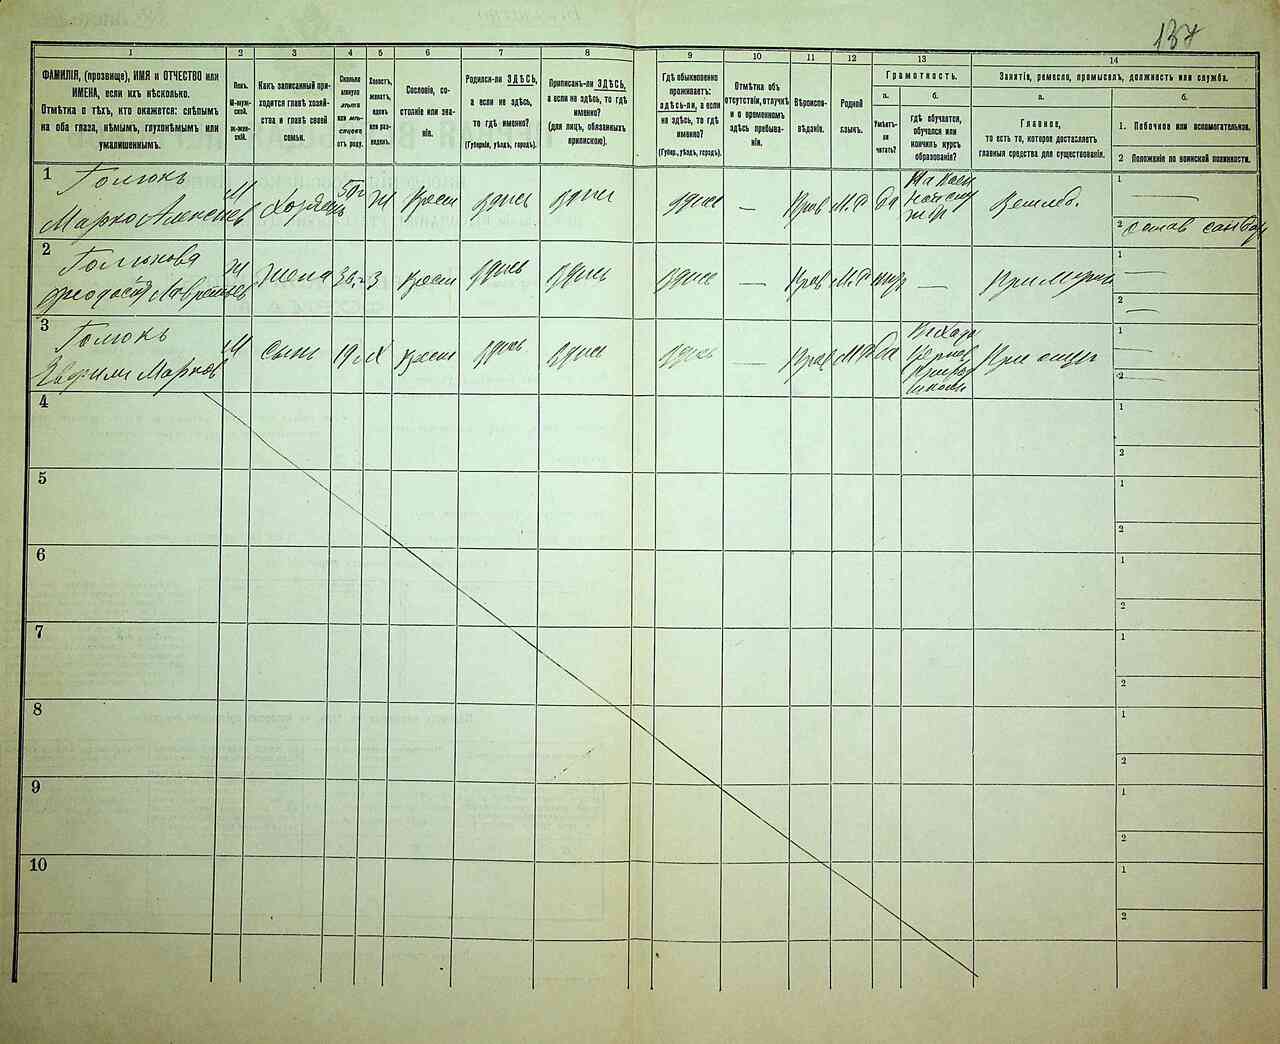 137
1
2
3
4
5
6
7
8
9
10
11
12
13
14
ФАМИЛІЯ, (прозвище), ИМЯ и ОТЧЕСТВО или
ИМЕНА, если ихъ нѣсколько.
Отмѣтка о тѣхъ, кто окажется: слѣпымъ
на оба глаза, нѣмымъ, глухонѣмымъ или
умалишеннымъ.
Полъ.
М-мужской.
Ж-женскій.
Какъ записанный при-
ходится главѣ хозяй-
ства и главѣ своей
семьи.
Сколько
минуло
лѣтъ
или мѣ-
сяцевъ
отъ роду.
Холостъ,
женатъ,
вдовъ
или раз-
веденъ.
Сословіе, со-
стояніе или зва-
ніе.
Родился-ли ЗДѢСЬ,
а если не здѣсь,
то гдѣ именно?
(Губернія, уѣздъ, городъ).
Приписанъ-ли ЗДѢСЬ,
а если не здѣсь, то гдѣ
именно?
(для лицъ, обязанныхъ
припискою).
Гдѣ обыкновенно
проживаетъ:
здѣсь-ли, а если
не здѣсь, то гдѣ
именно?
(Губер., уѣздъ, городъ).
Отмѣтка объ
отсутствіи, отлучкѣ
и о временномъ
здѣсь пребыва-
ніи.
Вѣроиспо-
вѣданіе.
Родной
языкъ.
Грамотность.
а.
Умѣетъ-
ли
читать?
б.
гдѣ обучается,
обучался или
кончилъ курсъ
образованія?
Занятія, ремесло, промыселъ, должность или служба.
а.
Главное,
то есть то, которое доставляетъ
главныя средства для существованія.
б.
1. Побочное или вспомогательное.
2 Положеніе по воинской повинности.
1
Голюкъ
Марко Алексѣев
М Хозяинъ 50 Ж Крест здѣсь здѣсь здѣсь — Прав М.Р да
Землед.
1 —
2
2
Голюкова
Феодосія Лаврентьев
Ж Жена 3 Крест здѣсь здѣсь здѣсь — Прав М.Р — При мужѣ
1 —
2 —
3
Голюкъ
Марков
М Сынъ 19 Х Крест здѣсь здѣсь здѣсь — Прав М.Р да
школы
При отцѣ
1 —
2 —
4
1
2
5
1
2
6
1
2
7
1
2
8
1
2
9
1
2
10
1
2